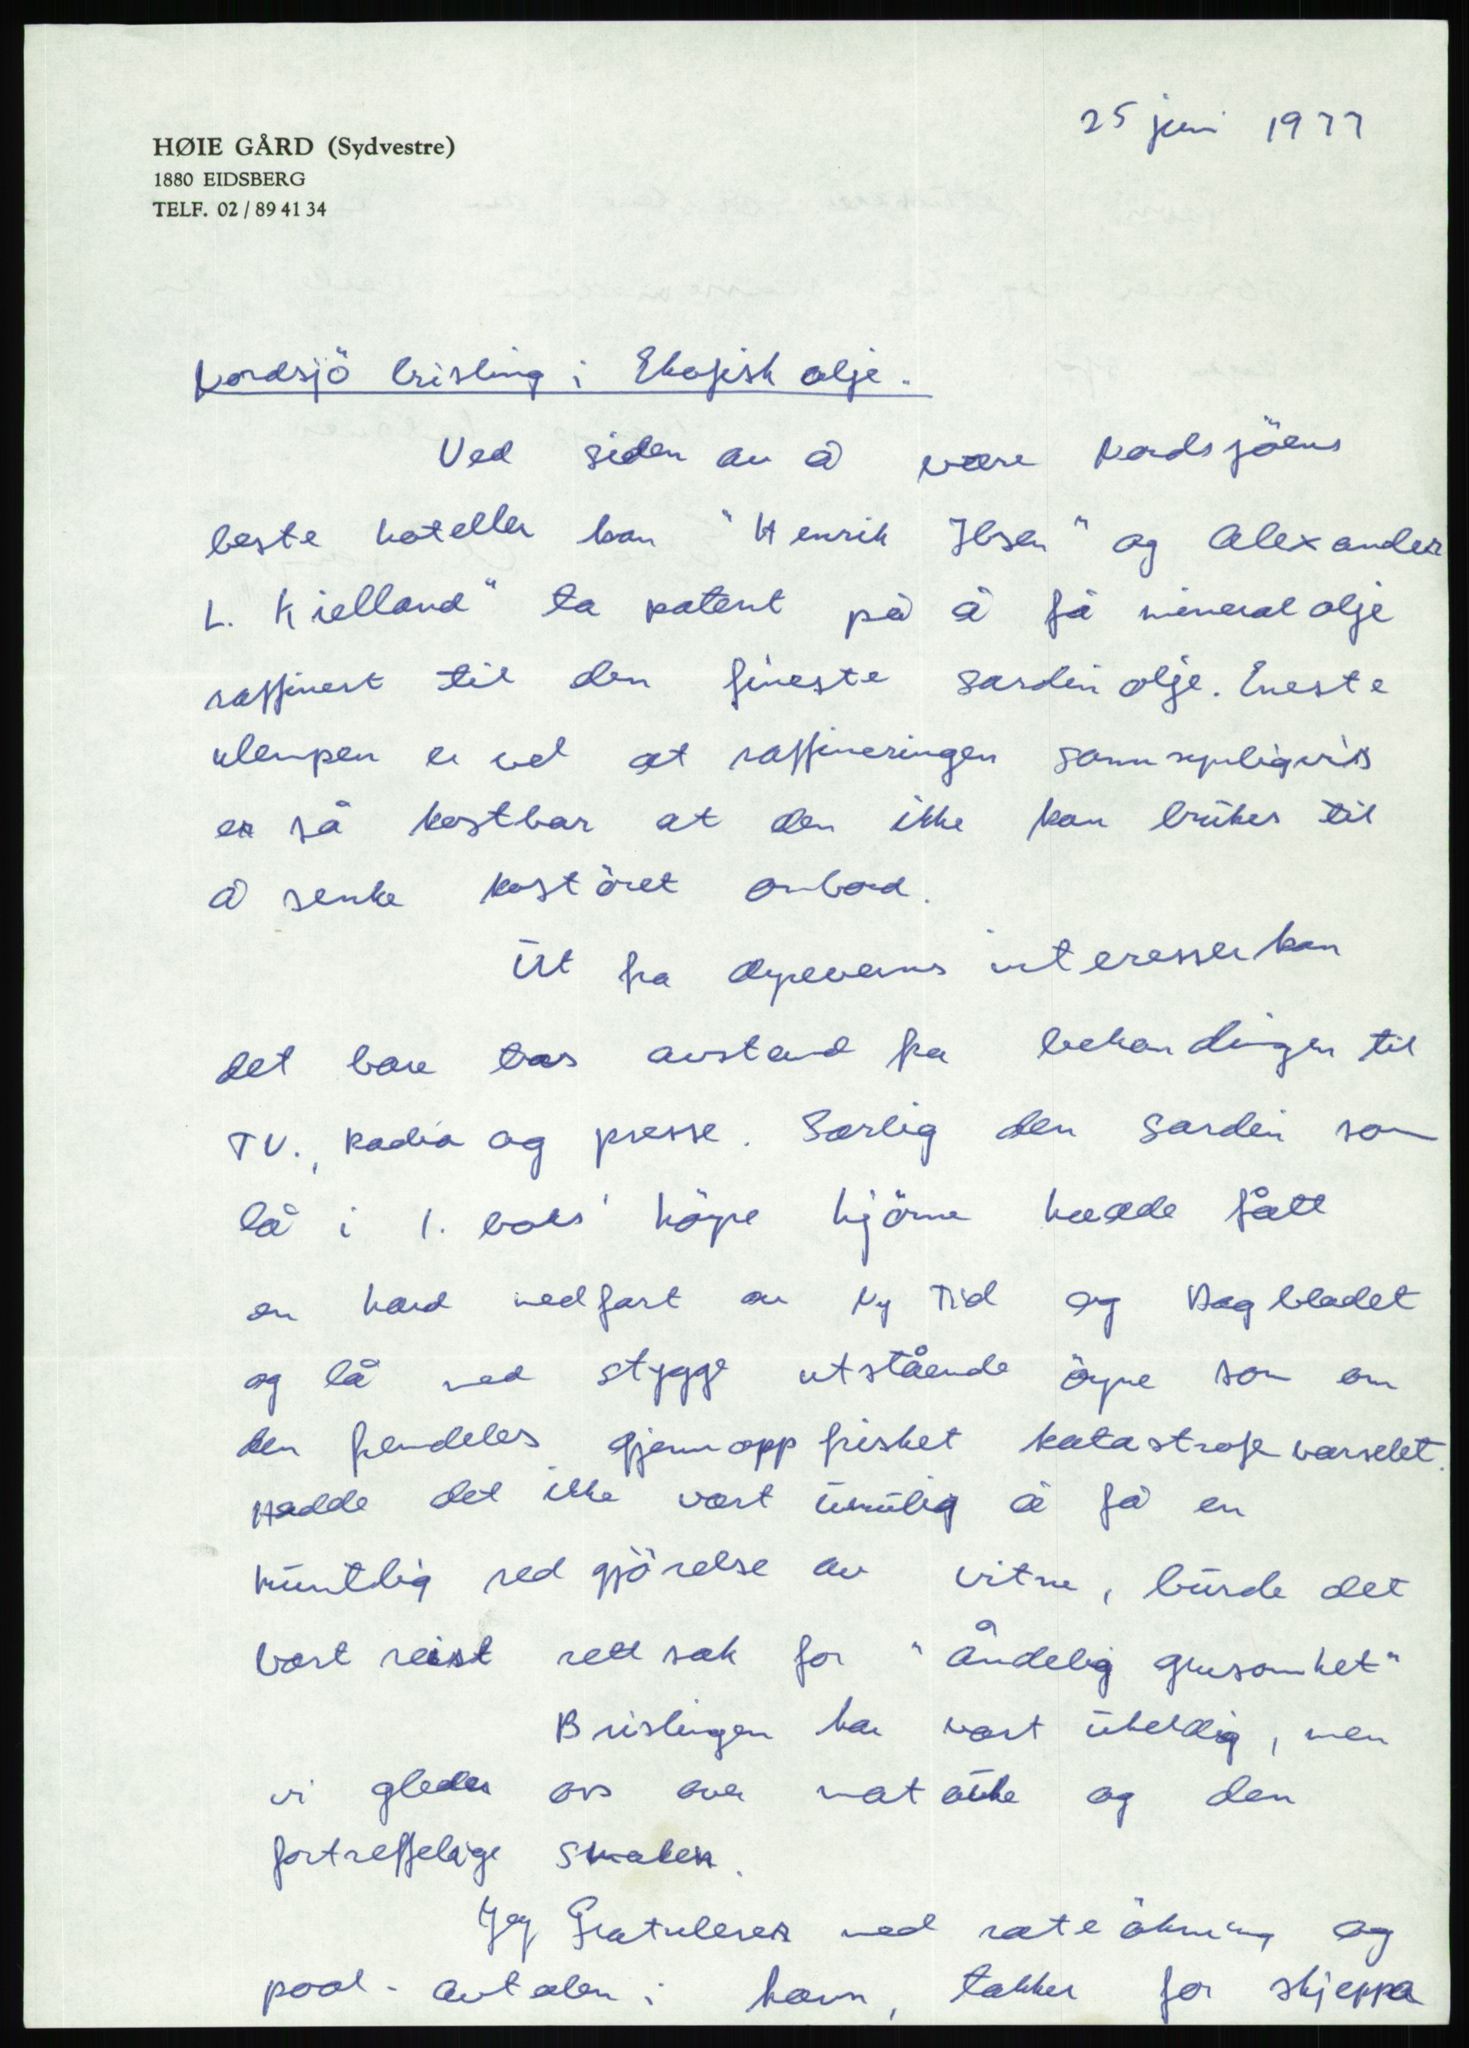 25 juni 1977
HØIE GÅRD (Sydvestre)
1880 EIDSBERG
TELF. 02 / 89 41 34
Nordsjö brisling i Ekofisk olje.
Ved siden av å være Nordsjöens
beste hoteller kan "Henrik Ibsen" og Alexander
L. Kielland" ta patent på å få mineral olje
raffinert til den fineste sardin olje. Eneste
ulempen er vel at raffineringen sannsynligvis
er så kostbar at den ikke kan brukes til
å senke kostöret ombord.
Ut fra dyreverns interesser kan
det bare tas avstand fra behandlingen til
TV., Radio og presse. Særlig den sardin som
lå i 1. boks' höyre hjörne hadde fått
en hard medfart av Ny Tid og Dagbladet
og lå med stygge utstående öyne som om
den fremdeles gjennoppfrisket katastrofe varselet.
Hadde det ikke vært umulig å få en
muntlig redgjörelse av vitne, burde det
vært reist rettsak for "åndelig grusomhet"
Brislingen har vært uheldig, men
vi gleder oss over mat og den
fortreffelige smaken.
Jeg Gratulerer med rate ökning og
pool-avtalen i havn, takker for skjeppa